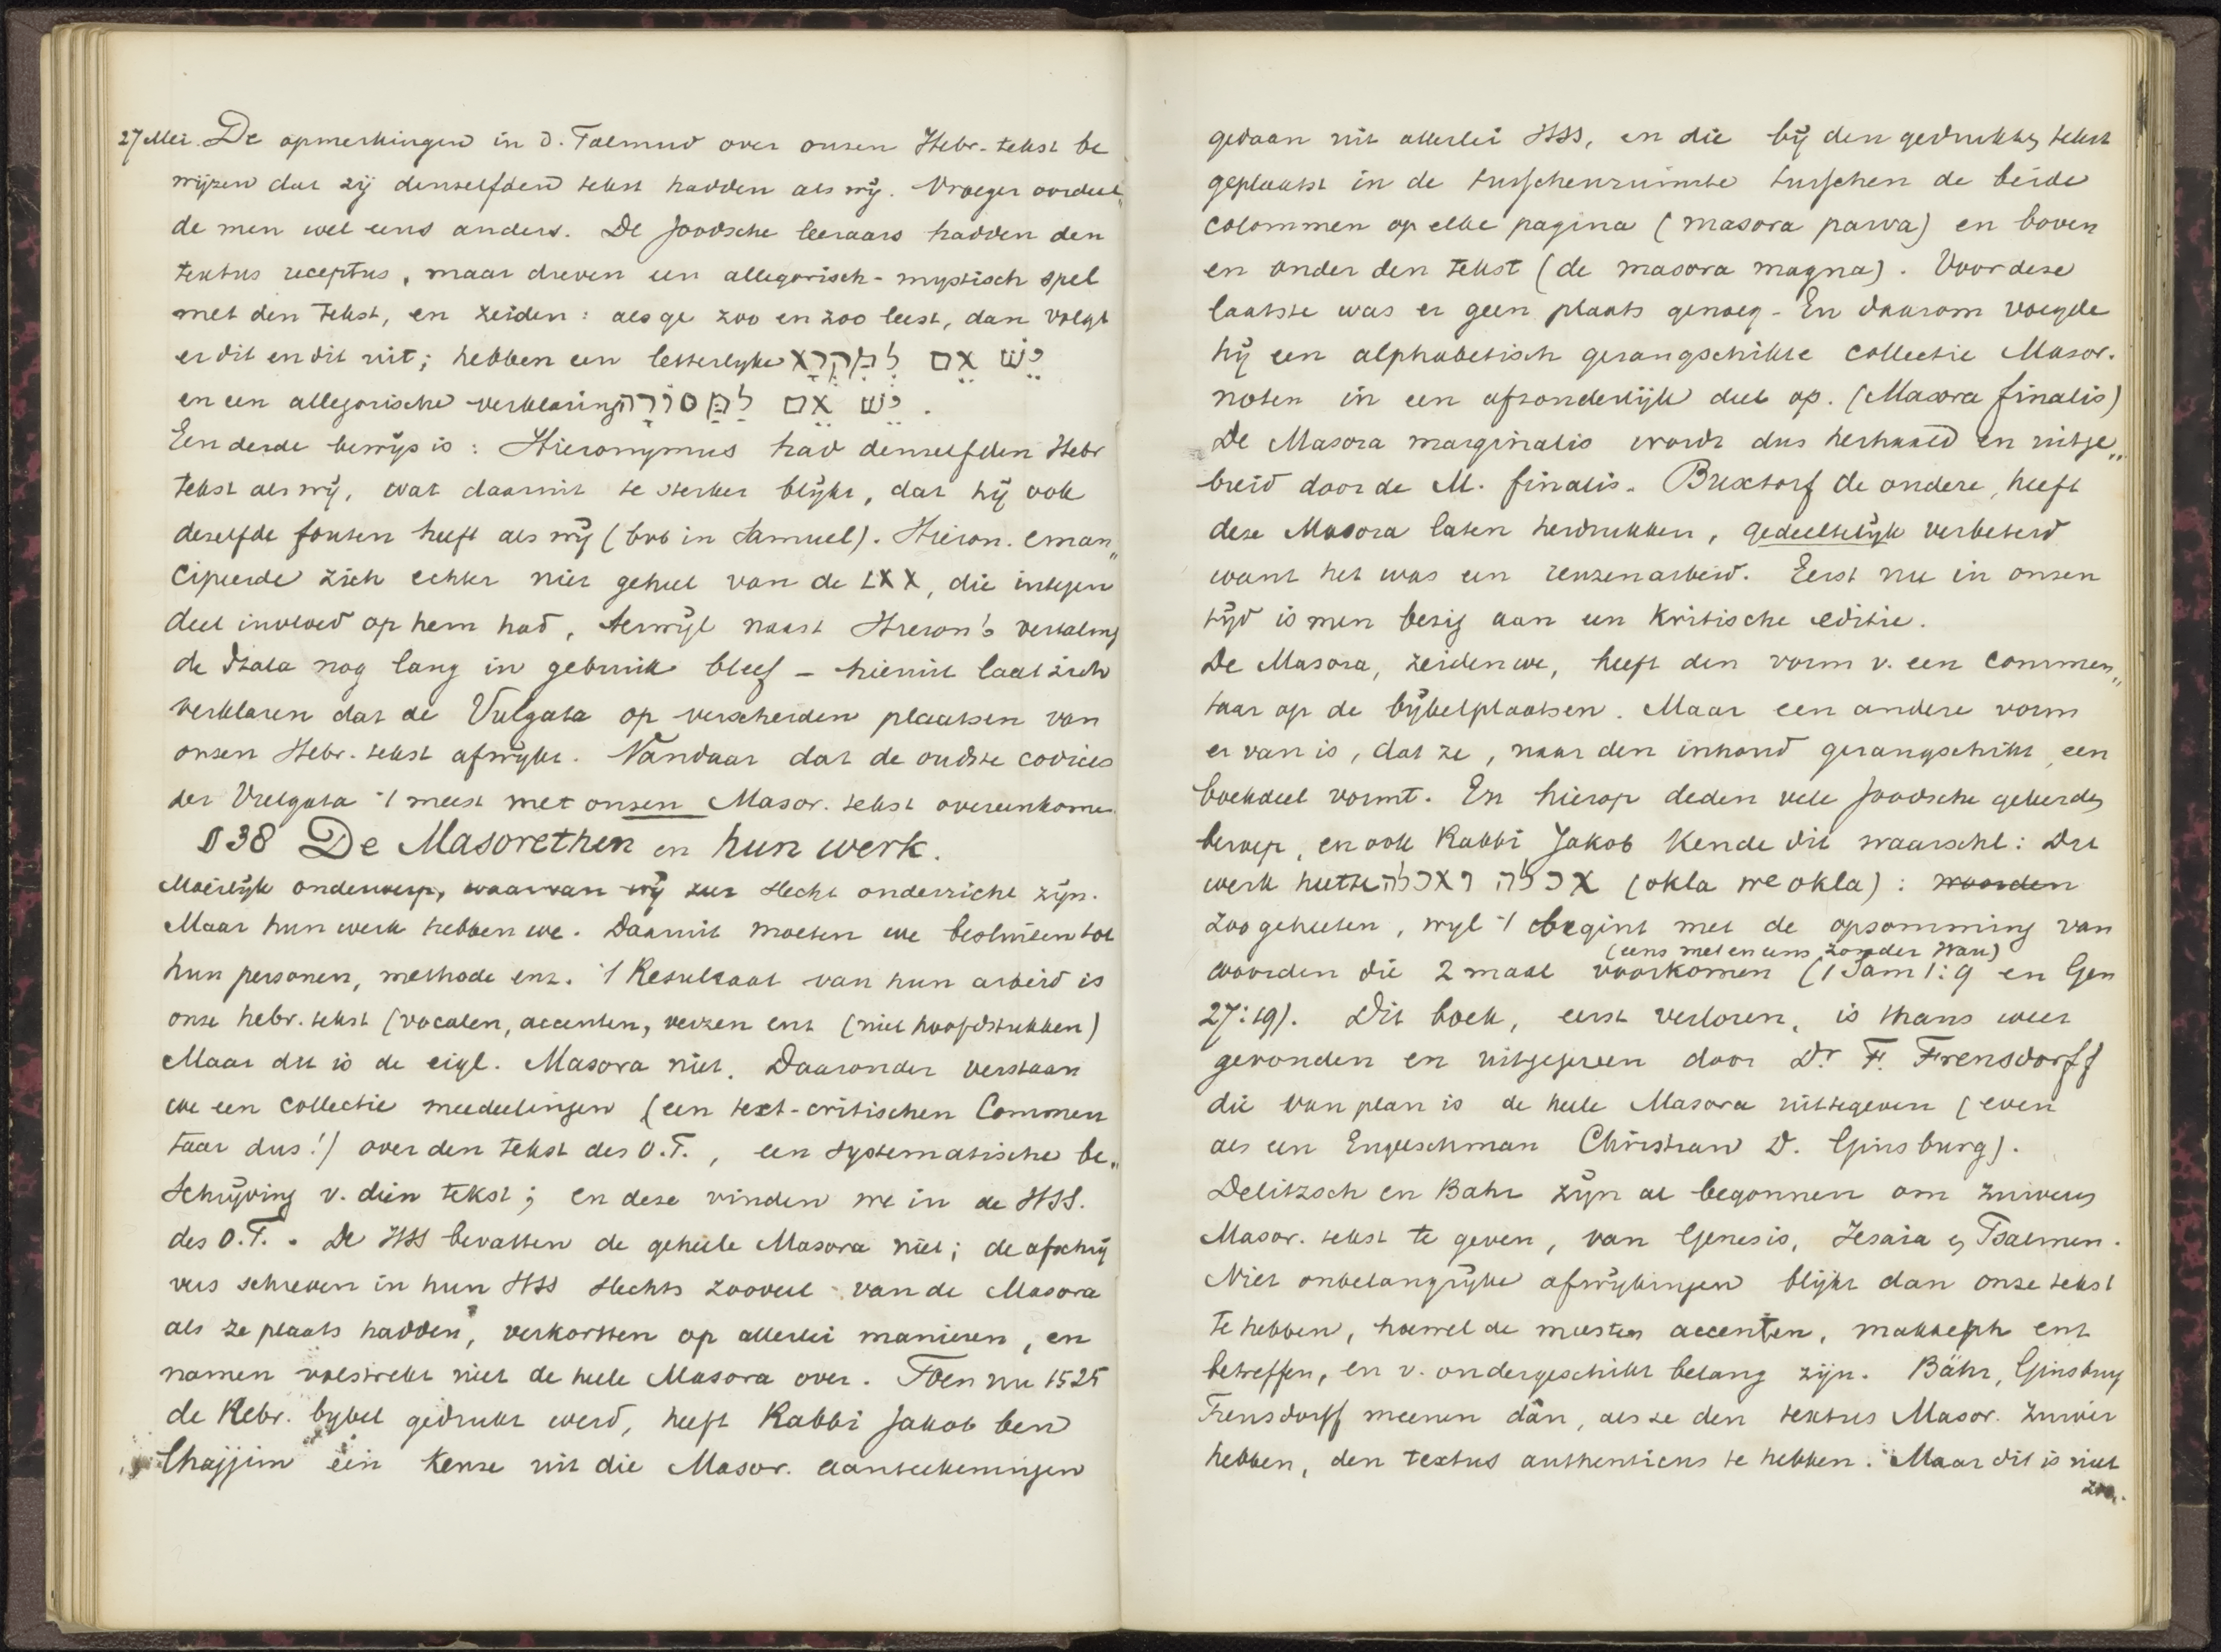 27 Mei. De opmerkingen in d. Talmud over onzen Hebr. tekst be
wijzen dat zij denzelfden tekst hadden als wij. Vroeger oordeel„
de men wel eens anders. De Joodsche leeraars hadden den
textus receptus, maar dreven een allegorisch-mystisch spel
met den tekst, en zeiden: als ge zoo en zoo leest, dan volgt
er dit en dit uit; hebben een letterlyke יֵשׁ אֵם לַמִּקְרָא
en een allegorische verklaring יֵשׁ אֵם לַמָּסוֹרָה.
Een derde bewijs is: Hieronymus had denzelfden Hebr
tekst als wij, wat daaruit te sterker blijkt, dat hij ook
dezelfde fouten heeft als wij (bvb in Samuel). Hieron. eman„
cipeerde zich echter niet geheel van de LXX, die integen
deel invloed op hem had, terwijl naast Hieron's vertaling
de Itala nog lang in gebruik bleef – hieruit laat zich
verklaren dat de Vulgata op verscheiden plaatsen van
onzen Hebr. tekst afwijkt. Vandaar dat de oudste codices
der Vulgata 't meest met onzen Masor. tekst overeenkomen.
§ 38 De Masorethen en hun werk.
Moeilijk onderwerp, waarvan wij zeer slecht onderricht zijn.
Maar hun werk hebben we. Daaruit moeten we besluiten tot
hun personen, methode enz. 't Resultaat van hun arbeid is
onze hebr. tekst (vocalen, accenten, verzen enz (niet hoofdstukken)
Maar dit is de eigl. Masora niet. Daaronder verstaan
we een collectie meedeelingen (een text-critischen Commen
taar dus!) over den tekst des O.T., een systematische be„
schrijving v. dien tekst; en deze vinden we in de HSS.
des O.T. . De HSS bevatten de geheele Masora niet; de afschrij
vers schreven in hun HSS slechts zooveel van de Masora
als ze plaats hadden, verkortten op allerlei manieren, en
namen volstrekt niet de heele Masora over. Toen nu 1525
de Hebr. bybel gedrukt werd, heeft Rabbi Jakob ben
Chajjim een keuze uit die Masor. aanteekeningen
gedaan uit allerlei HSS, en die bij den gedrukten tekst
geplaatst in de tusschenruimte tusschen de beide
colommen op elke pagina (masora parva) en boven
en onder den tekst (de masora magna). Voor deze
laatste was er geen plaats genoeg – En daarom voegde
hij een alphabetisch gerangschikte collectie Masor.
noten in een afzonderlijk deel op. (Masora finalis)
De Masora marginalis wordt dus herhaald en uitge„
breid door de M. finalis. Buxtorf de oudere, heeft
deze Masora laten herdrukken, gedeeltelijk verbeterd
want het was een reuzenarbeid. Eerst nu in onzen
tijd is men bezig aan een kritische editie.
De Masora, zeiden we, heeft den vorm v. een commen„
taar op de bijbelplaatsen. Maar een andere vorm
er van is, dat ze, naar den inhoud gerangschikt, een
boekdeel vormt. En hierop deden vele Joodsche geleerden
beroep, en ook Rabbi Jakob kende dit waarschl: Dit
werk heette אכלה ואכלה (okla we okla): woorden
zoo geheeten, wijl 't begint met de opsomming van
(eens met en eens zonder Wau)
woorden die 2 maal voorkomen (1 Sam 1:9 en Gen
27:19). Dit boek, eerst verloren, is thans weer
gevonden en uitgegeven door Dr. F. Frensdorff
die van plan is de heele Masora uittegeven (even
als een Engelschman Christian D. Ginsburg).
Delitzsch en Bahr zijn al begonnen om zuiveren
Masor. tekst te geven, van Genesis, Jesaia en Psalmen.
Niet onbelangrijke afwijkingen blijkt dan onze tekst
te hebben, hoewel de meesten accenten, makkeph enz
betreffen, en v. ondergeschikt belang zijn. Bähr, Ginsburg
Frensdorff meenen dàn, als ze den textus Masor. zuiver
hebben, den textus authenticus te hebben. Maar dit is niet
zoo.